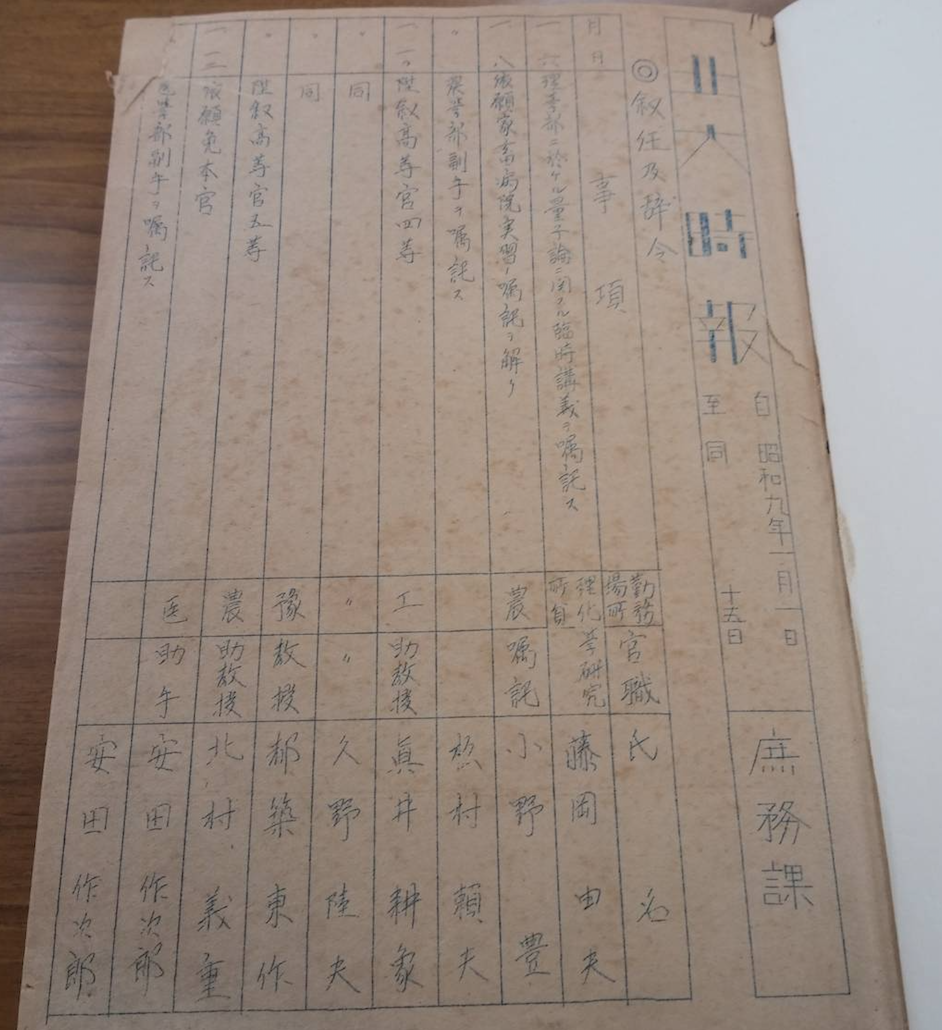 北大時報
自 昭和九年一月一日
至 同 十五日
庶務課
◎叙任及辞令
月日 事項 勤務場所 官職 氏名
一 六 理学部ニ於ケル量子論ニ関スル臨時講義ヲ嘱託ス 理化学研究所員 藤岡由夫
一 八 依願家畜病院実習ノ嘱託ヲ解ク 農 嘱託 小野豊
〃 農学部副手ヲ嘱託ス 村頼夫
一 一〃 陞叙高等官四等 工 助教授 眞井耕象
〃 同 〃 〃 久野陸夫
〃 同 豫 教授 都築東作
〃 陞叙高等官五等 農 助教授 北村義重
一 一二 依願免本官 医 助手 安田作次郎
〃 医学部副手ヲ嘱託ス 安田作次郎